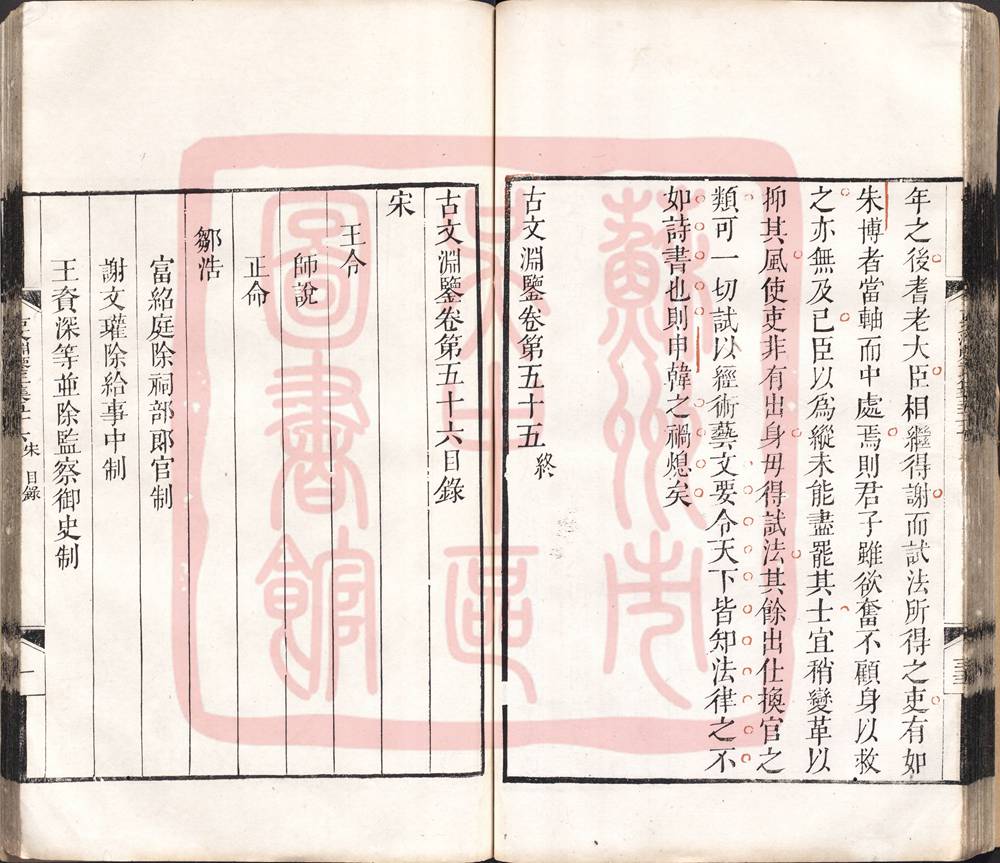 年之後耆老大臣相繼得謝而試法所得之吏有如
朱博者當軸而中處焉則君子雖欲奮不顧身以救
之亦無及已臣以為縱未能盡罷其士宜稍變革以
抑其風使吏非有出身毋得試法其餘出仕換官之
類可一切試以經術藝文要令天下皆知法律之不
如詩書也則申韓之禍熄矣
古文淵鑒卷第五十五 終
古文淵鑒卷第五十六目錄
宋
王令
師說
正命
鄒浩
富紹庭除祠部郎官制
謝文瓘除給事中制
王資深等並除監察御史制
目錄
一
蘇州市
圖書館